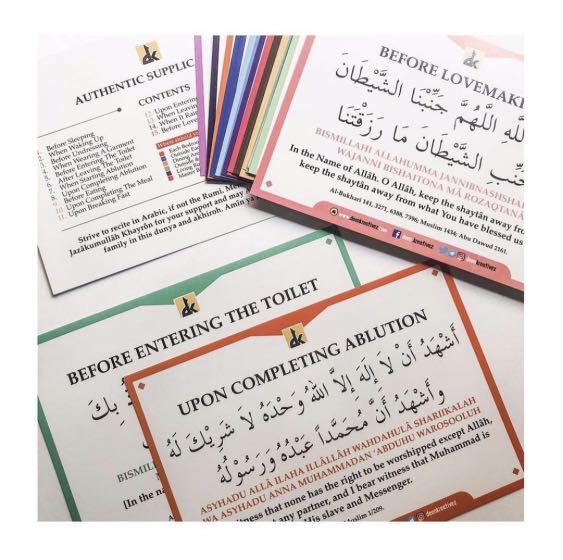 AUTHENTIC SUPPLIC
CONTENTS
1. Before Sleeping
When Waking Up
Before Undressing
When Wearing A Garment
Before Entering The Toilet
After Leaving The Toilet
When Starting Ablution
Upon Completing Ablution
Before Eating
10 Upon Completing The Meal
11 Upon Breaking Fast
12. Upon Entering
13. When Leaving
14. When It Rains
15. Before Love
Strive to recite in Arabic, if not the Rumi. Mer
Jazākumullah Khayrōn for your support and may
family in this dunya and akhiroh. Amīn ya
BEFORE LOVEMAKI
الله اللَّهُمَّ جَنِّبْنَا الشَّيْطَانَ
جَنِّبِ الشَّيْطَانَ مَا رَزَقْتَنَا
BISMILLAHI ALLAHUMMA JANNIBNASHSHA
WAJANNI BISHAITONA MĀ ROZAQTANĀ
In the Name of Allāh. O Allāh, keep the shaytān away from
keep the shaytān away from what You have blessed us
Al-Bukhari 141, 3271, 6388, 7396; Muslim 1434; Abu Dawud 2161.
www.deenkreativez.com
deenkreativez
deenkreativez
BEFORE ENTERING THE TOILET
بِكَ
BISMIL
[In the na
UPON COMPLETING ABLUTION
أَشْهَدُ أَنْ لَا إِلَهَ إِلَّا اللَّهُ وَحْدَهُ لَا شَرِيْكَ لَهُ
وَأَشْهَدُ أَنَّ مُحَمَّدًا عَبْدُهُ وَرَسُوْلُهُ
ASYHADU ALLĀ ILAHA ILLĀLLĀH WAHDAHULĀ SHARIIKALAH
WA ASYHADU ANNA MUHAMMADAN 'ABDUHU WAROSOOLUH
itness that none has the right to be worshipped except Allāh,
any partner, and I bear witness that Muhammad is
His slave and Messenger.
Muslim 1/209.
deenkreativez